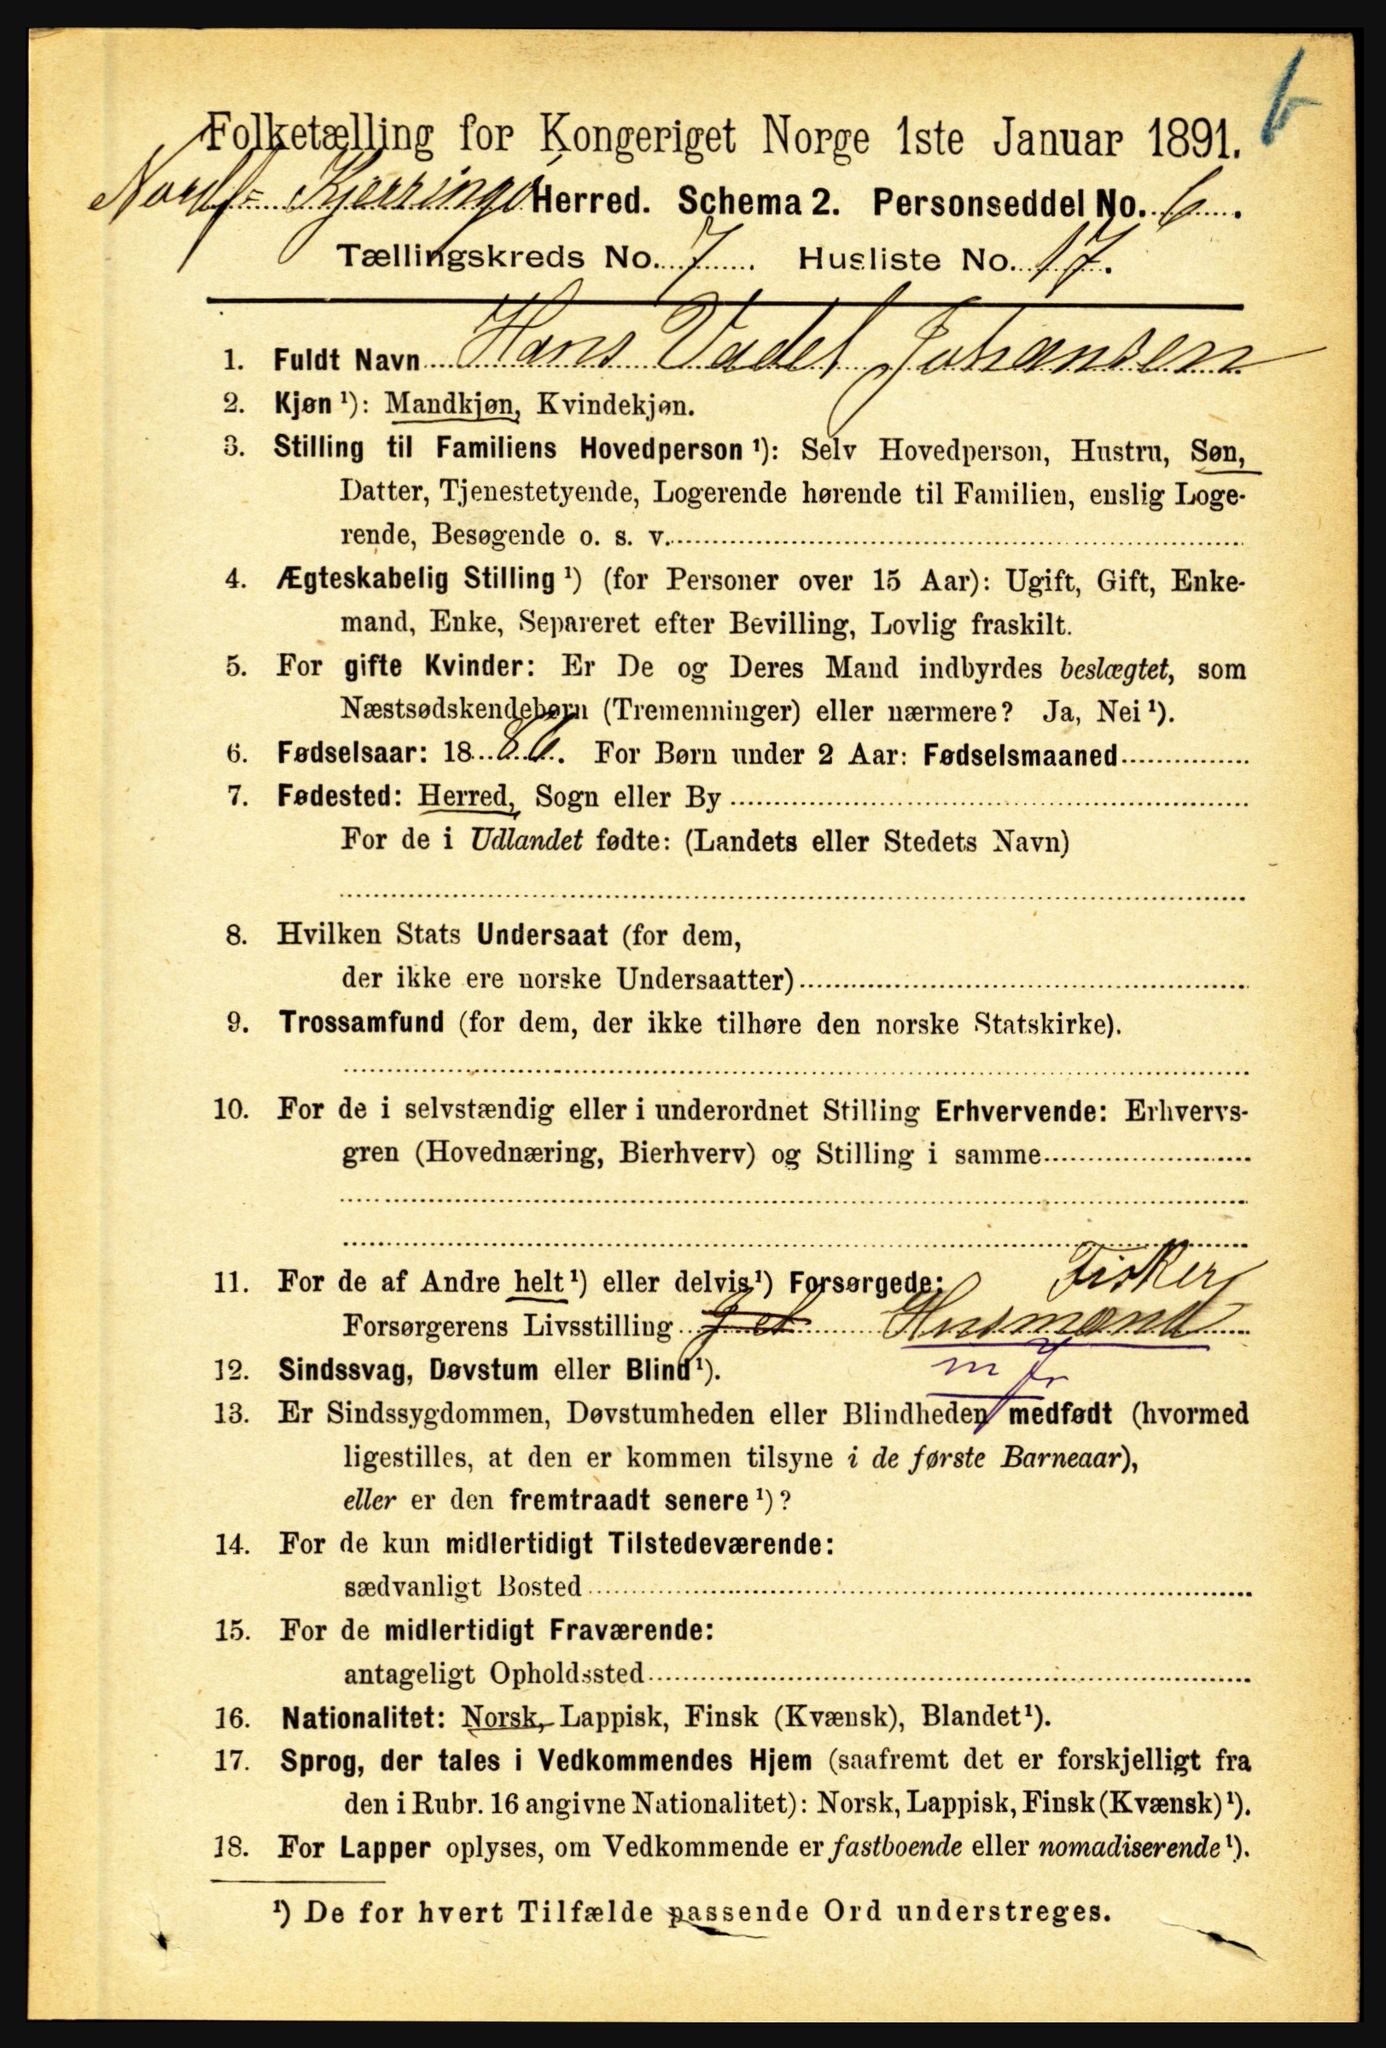 6
Folketælling for Kongeriget Norge 1ste Januar 1891.
Nordf-Kjerringø Herred. Schema 2. Personseddel No. 6.
Tællingskreds No. 7. Husliste No. 17.
1. Fuldt Navn Hans Vadel Johansen
2. Kjøn ¹): Mandkjøn, Kvindekjøn.
3. Stilling til Familiens Hovedperson ¹): Selv Hovedperson, Hustru, Søn,
Datter, Tjenestetyende, Logerende hørende til Familien, enslig Loge-
rende, Besøgende o. s. v.
4. Ægteskabelig Stilling ¹) (for Personer over 15 Aar): Ugift, Gift, Enke-
mand, Enke, Separeret efter Bevilling, Lovlig fraskilt.
5. For gifte Kvinder: Er De og Deres Mand indbyrdes beslægtet, som
Næstsødskendebørn (Tremenninger) eller nærmere? Ja, Nei ¹).
6. Fødselsaar: 1886. For Børn under 2 Aar: Fødselsmaaned
7. Fødested: Herred, Sogn eller By
For de i Udlandet fødte: (Landets eller Stedets Navn)
8. Hvilken Stats Undersaat (for dem,
der ikke ere norske Undersaatter)
9. Trossamfund (for dem, der ikke tilhøre den norske Statskirke).
10. For de i selvstændig eller i underordnet Stilling Erhvervende: Erhvervs-
gren (Hovednæring, Bierhverv) og Stilling i samme
11. For de af Andre helt ¹) eller delvis ¹) Forsørgede: Fisker
Forsørgerens Livsstilling Husmand
12. Sindssvag, Døvstum eller Blind ¹). m Jr
13. Er Sindssygdommen, Døvstumheden eller Blindheden medfødt (hvormed
ligestilles, at den er kommen tilsyne i de første Barneaar),
eller er den fremtraadt senere ¹)?
14. For de kun midlertidigt Tilstedeværende:
sædvanligt Bosted
15. For de midlertidigt Fraværende:
antageligt Opholdssted
16. Nationalitet: Norsk, Lappisk, Finsk (Kvænsk), Blandet ¹).
17. Sprog, der tales i Vedkommendes Hjem (saafremt det er forskjelligt fra
den i Rubr. 16 angivne Nationalitet): Norsk, Lappisk, Finsk (Kvænsk) ¹).
18. For Lapper oplyses, om Vedkommende er fastboende eller nomadiserende ¹).
¹) De for hvert Tilfælde passende Ord understreges.